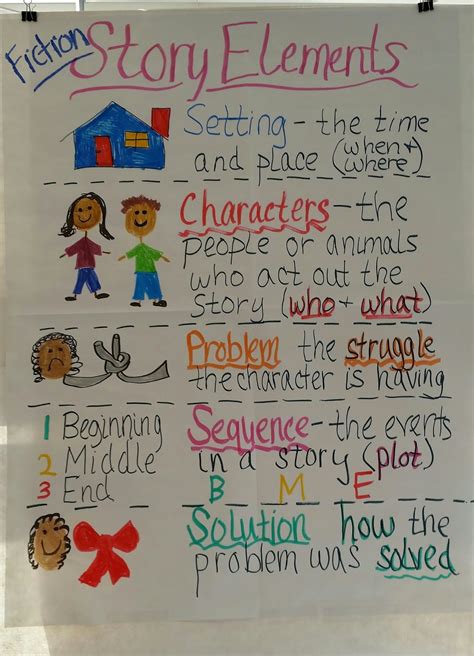 Fiction
Story Elements
Setting - the time
and place (when +
where)
Characters - the
people or animals
who act out the
story (who + what)
Problem the struggle
the character is having
1 Beginning
2 Middle
3 End
Sequence - the events
in a story (plot)
B M E
Solution how the
problem was solved